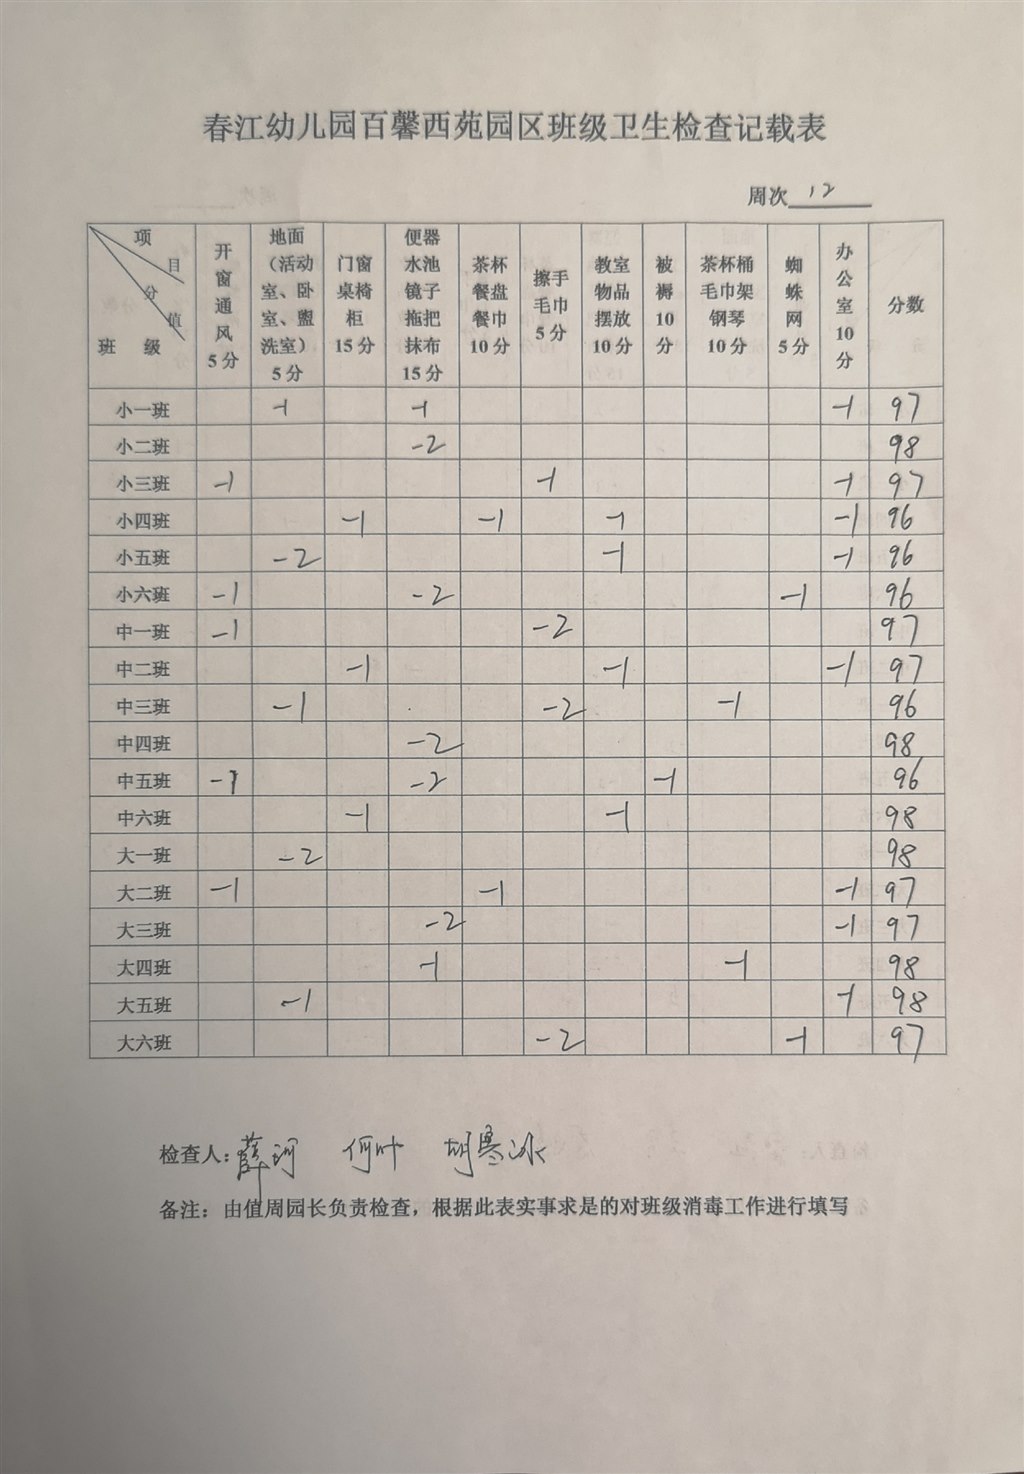 春江幼儿园百馨西苑园区班级卫生检查记载表
周次 12
项目 分值 班级 开窗通风5分 地面（活动室、卧室、盥洗室）5分 门窗桌椅柜15分 便器水池镜子拖把抹布15分 茶杯餐盘餐巾10分 擦手毛巾5分 教室物品摆放10分 被褥10分 茶杯桶毛巾架钢琴10分 蜘蛛网5分 办公室10分 分数
小一班 -1 -1 -1 97
小二班 -2 98
小三班 -1 -1 -1 97
小四班 -1 -1 -1 -1 96
小五班 -2 -1 -1 96
小六班 -1 -2 -1 96
中一班 -1 -2 97
中二班 -1 -1 -1 97
中三班 -1 -2 -1 96
中四班 -2 98
中五班 -1 -2 -1 96
中六班 -1 -1 98
大一班 -2 98
大二班 -1 -1 -1 97
大三班 -2 -1 97
大四班 -1 -1 98
大五班 -1 -1 98
大六班 -2 -1 97
检查人：薛珂 何叶 胡寒冰
备注：由值周园长负责检查，根据此表实事求是的对班级消毒工作进行填写